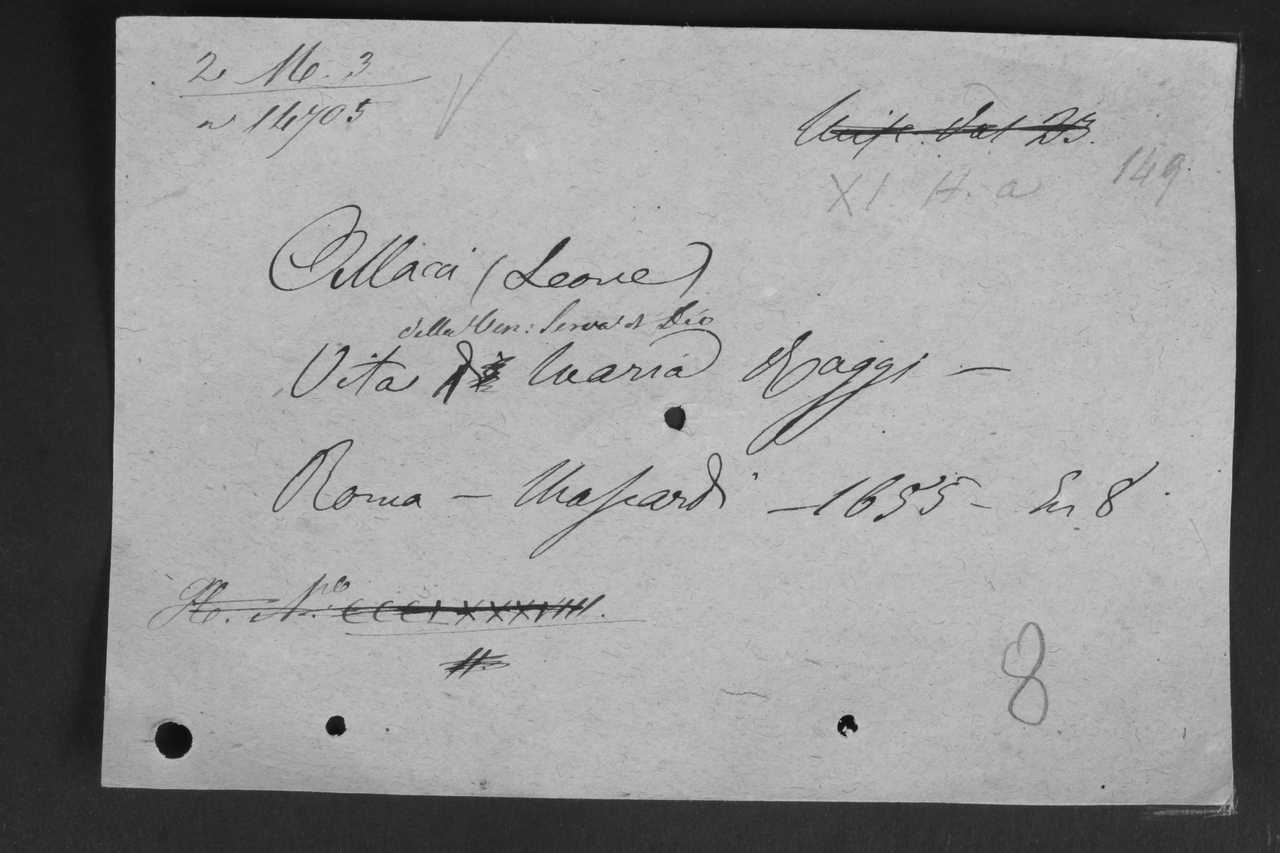 2. M. 3
n 14705
XI. H. a 149
Allacci (Leone)
della Ven: Serva di Dio
Vita di Maria Raggi —
Roma — Mascardi — 1655 — In 8.
H. No. CCCLXXXVIIII.
8